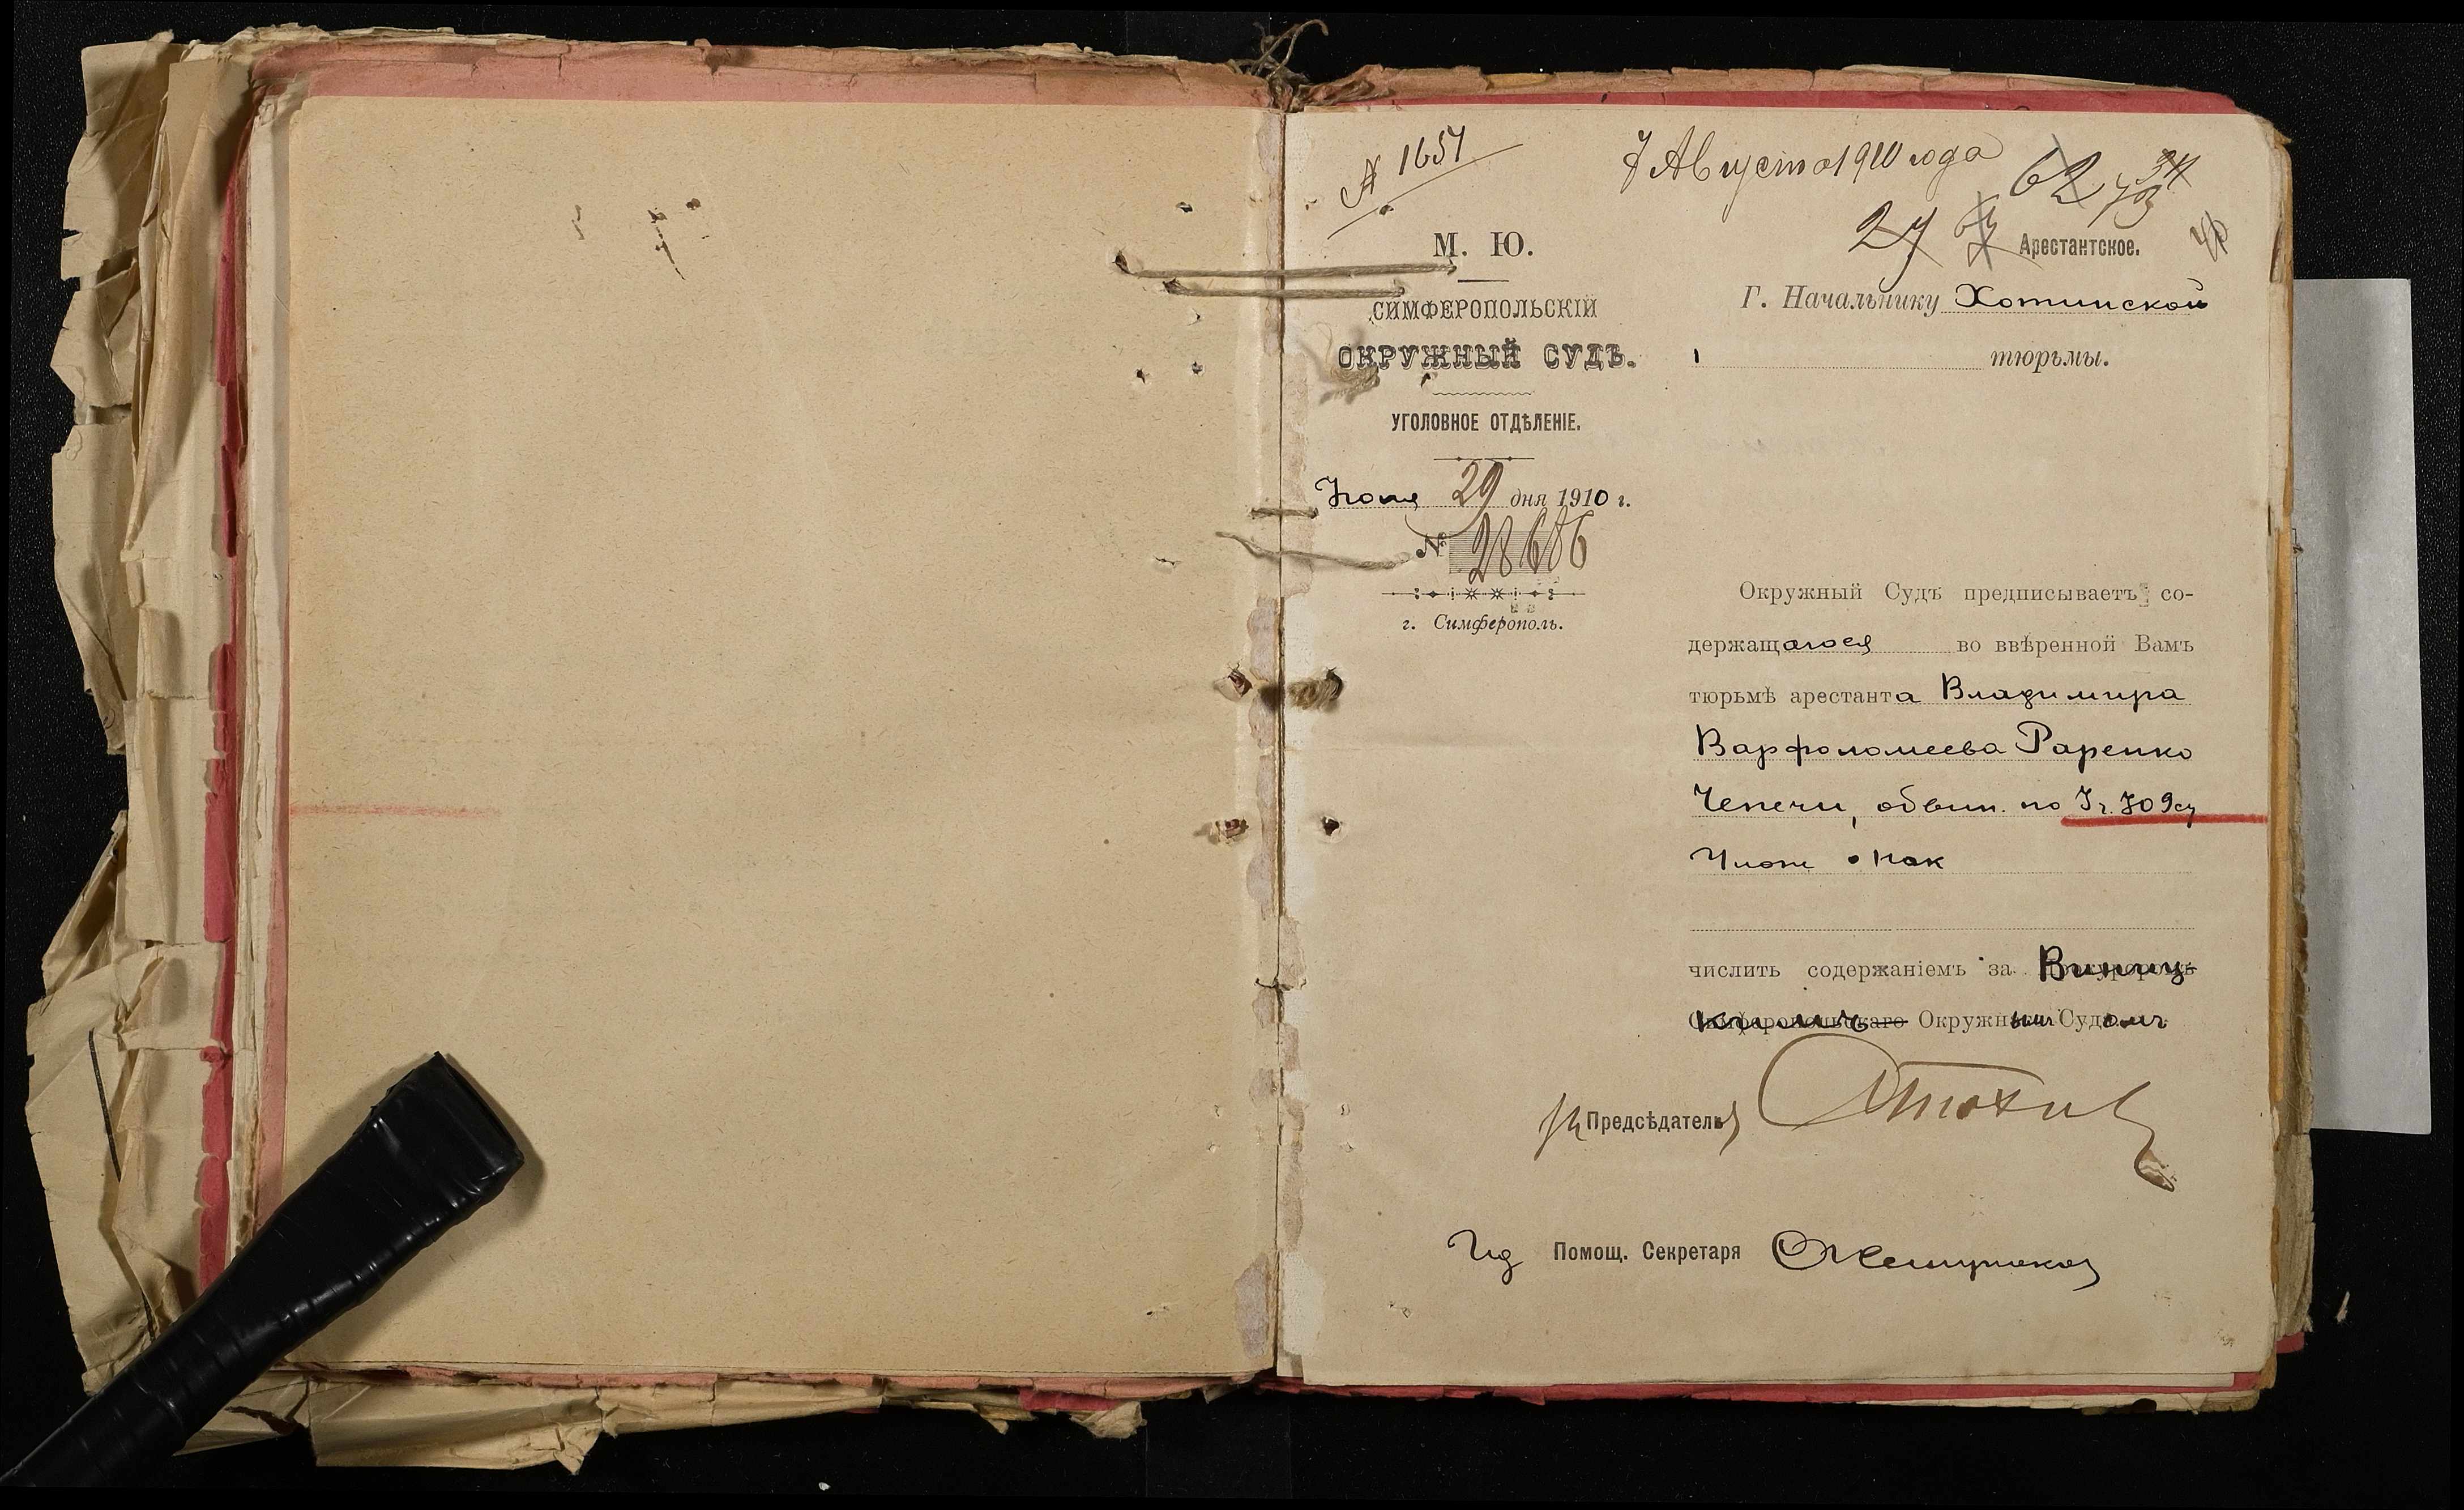 № 1651
7 Августа 1910 года
62 73 34
27 67 Арестантское. 46
М. Ю.
Г. Начальнику Хотинской
тюрьмы.
СИМФЕРОПОЛЬСКІЙ
ОКРУЖНЫЙ СУДЪ.
УГОЛОВНОЕ ОТДѢЛЕНІЕ.
Іюля 29 дня 1910 г.
№ 28686
г. Симферополь.
Окружный Судъ предписываетъ со-
держащагося во ввѣренной Вамъ
тюрьмѣ арестанта Владимира
Варфоломеева Раренко
Чепечи, обвин. по
числить содержаніемъ за Винниц-
кимъ Окружнымъ Судомъ
Предсѣдателя
Ид Помощ. Секретаря